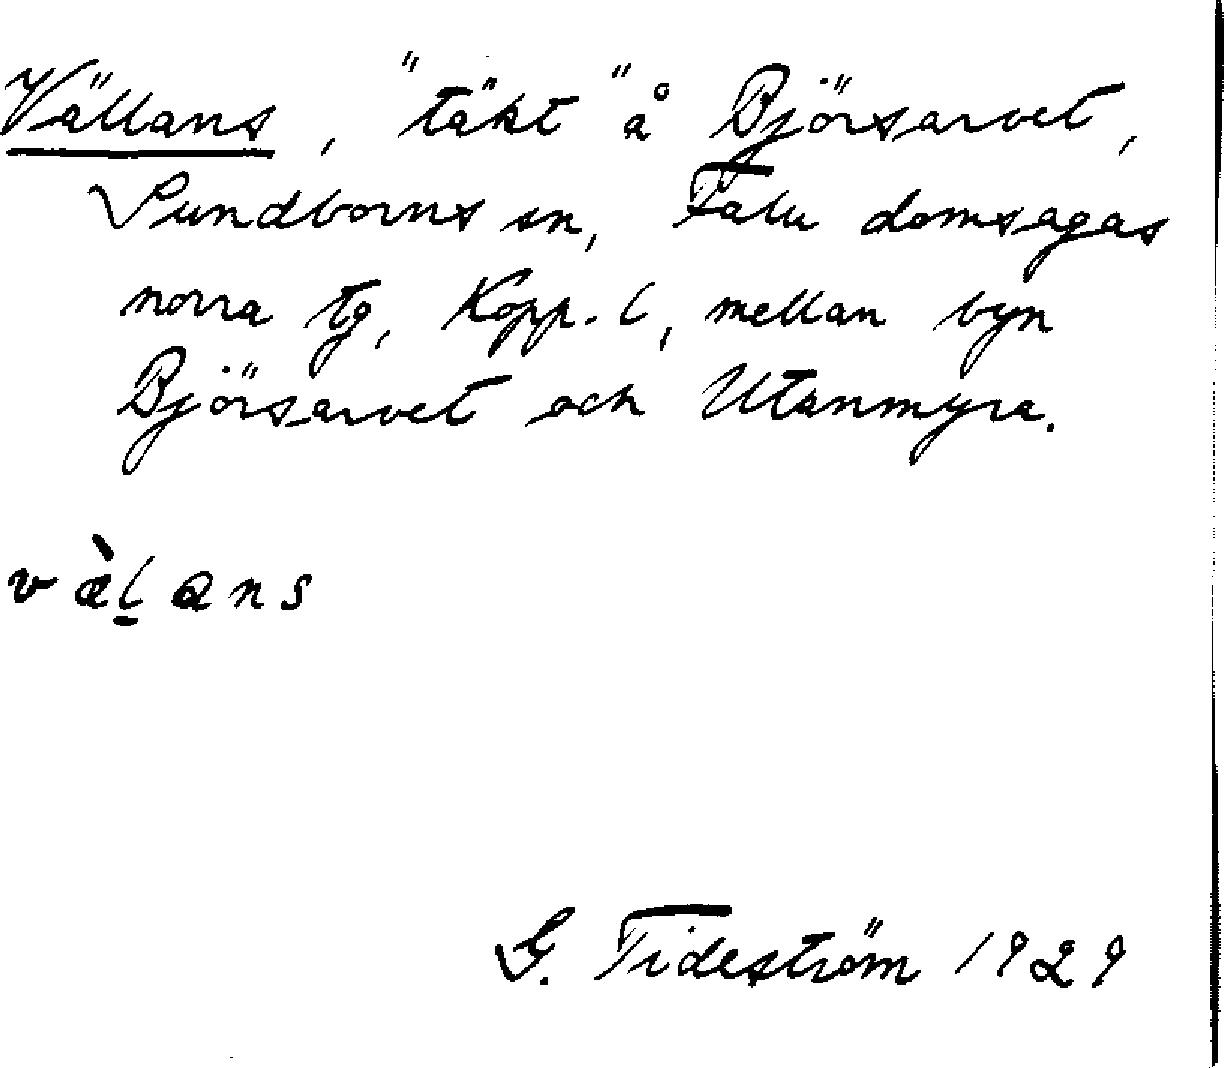 Vällans, "täkt" å Björsarvet,
Sundborns sn, Falu domsagas
norra tg, Kopp. l, mellan byn
Björsarvet och Utanmyra.
væ̀l̠ans
G. Tideström 1929